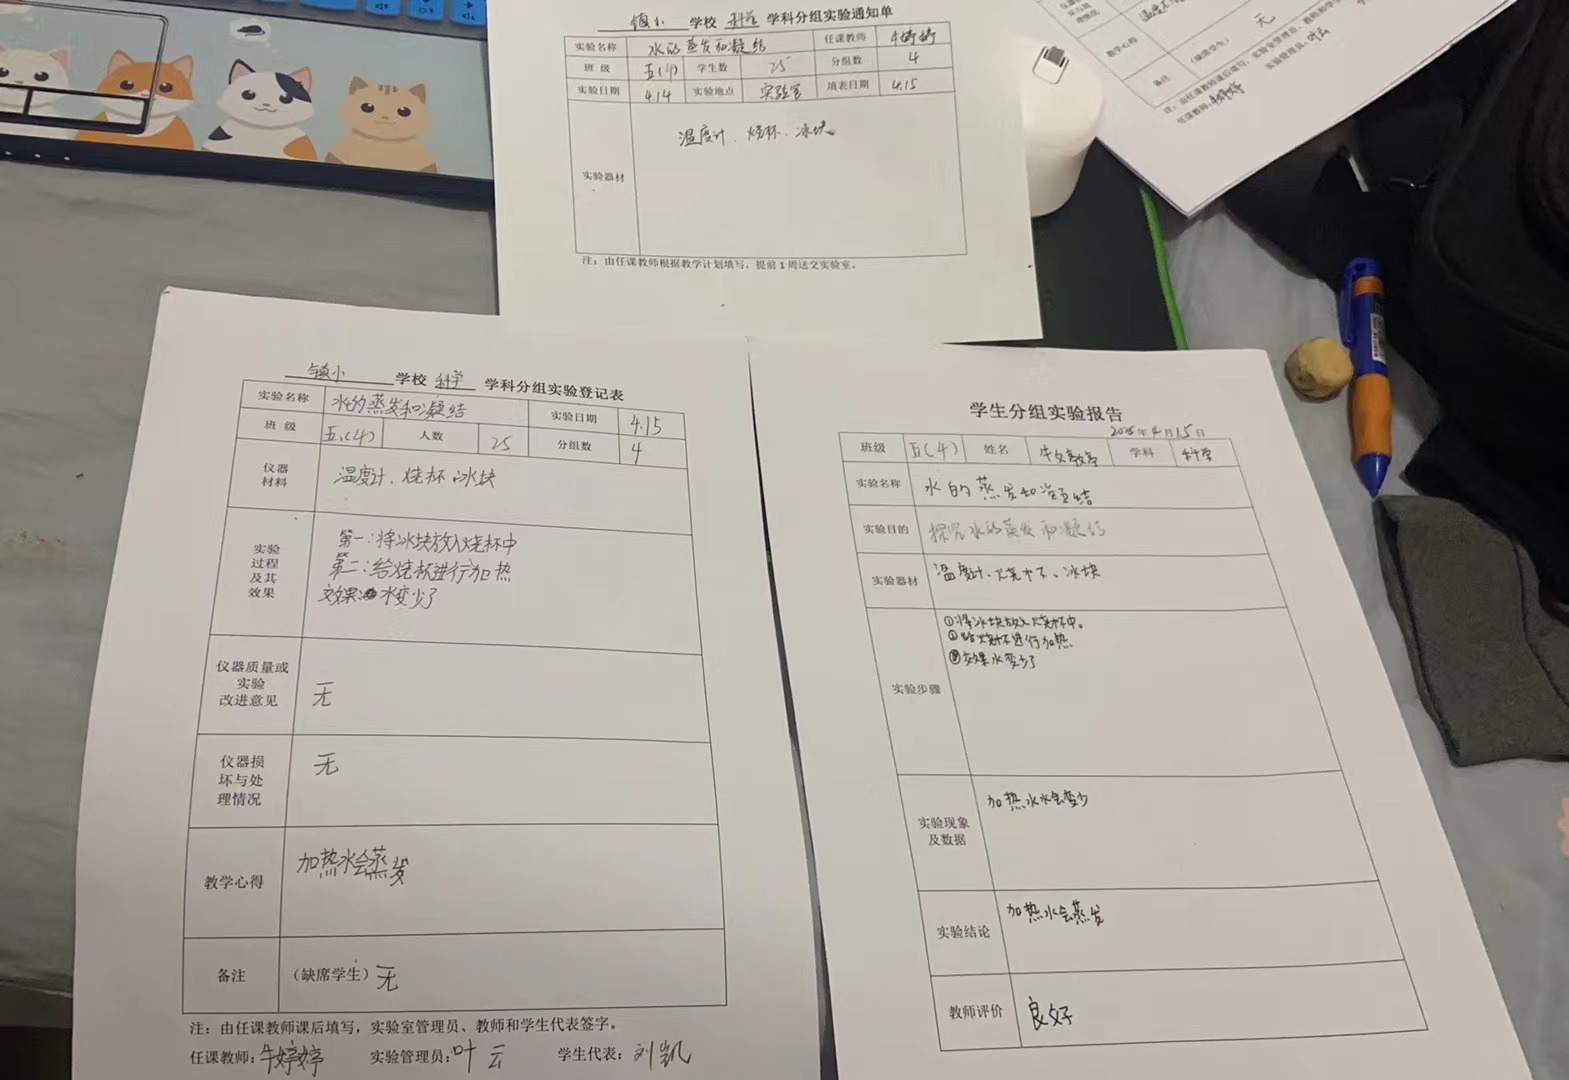 镇小 学校 科学 学科分组实验通知单
实验名称 水的蒸发和凝结 任课教师 牛婷婷
班 级 五(4) 学生数 25 分组数 4
实验日期 4.14 实验地点 实验室 填表日期 4.15
实验器材 温度计、烧杯、冰块
注：由任课教师根据教学计划填写，提前1周送交实验室。
教学心得 无
备注 (缺席学生)
注：由任课教师课后填写，实验室管理员、教师和学
任课教师: 牛婷婷 实验管理员: 叶云
镇小 学校 科学 学科分组实验登记表
实验名称 水的蒸发和凝结 实验日期 4.15
班 级 五(4) 人数 25 分组数 4
仪器材料 温度计、烧杯、冰块
实验过程及其效果
第一:将冰块放入烧杯中
第二:给烧杯进行加热
效果 水变少了
仪器质量或实验改进意见 无
仪器损坏与处理情况 无
教学心得 加热水会蒸发
备注 (缺席学生) 无
注：由任课教师课后填写，实验室管理员、教师和学生代表签字。
任课教师: 牛婷婷 实验管理员: 叶云 学生代表: 刘凯
学生分组实验报告
年4月15日
班级 五(4) 姓名 牛 学科 科学
实验名称 水的蒸发和凝结
实验目的 探究水的蒸发和凝结
实验器材 温度计、烧杯、冰块
实验步骤
①将冰块放入烧杯中。
②给烧杯进行加热
③效果水变少了
实验现象及数据 加热水水会变少
实验结论 加热水会蒸发
教师评价 良好